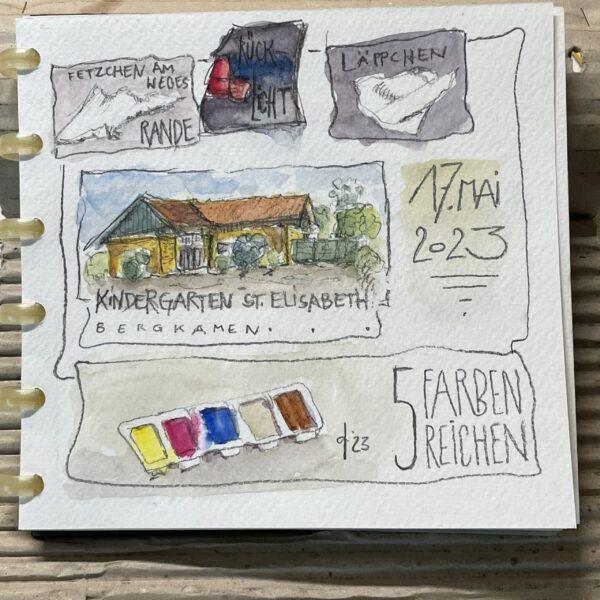 FETZCHEN AM
WEGES
RANDE
RÜCK
LICHT
LÄPPCHEN
17. MAI
2023
KINDERGARTEN ST. ELISABETH
BERGKAMEN. . . .
5 FARBEN
REICHEN